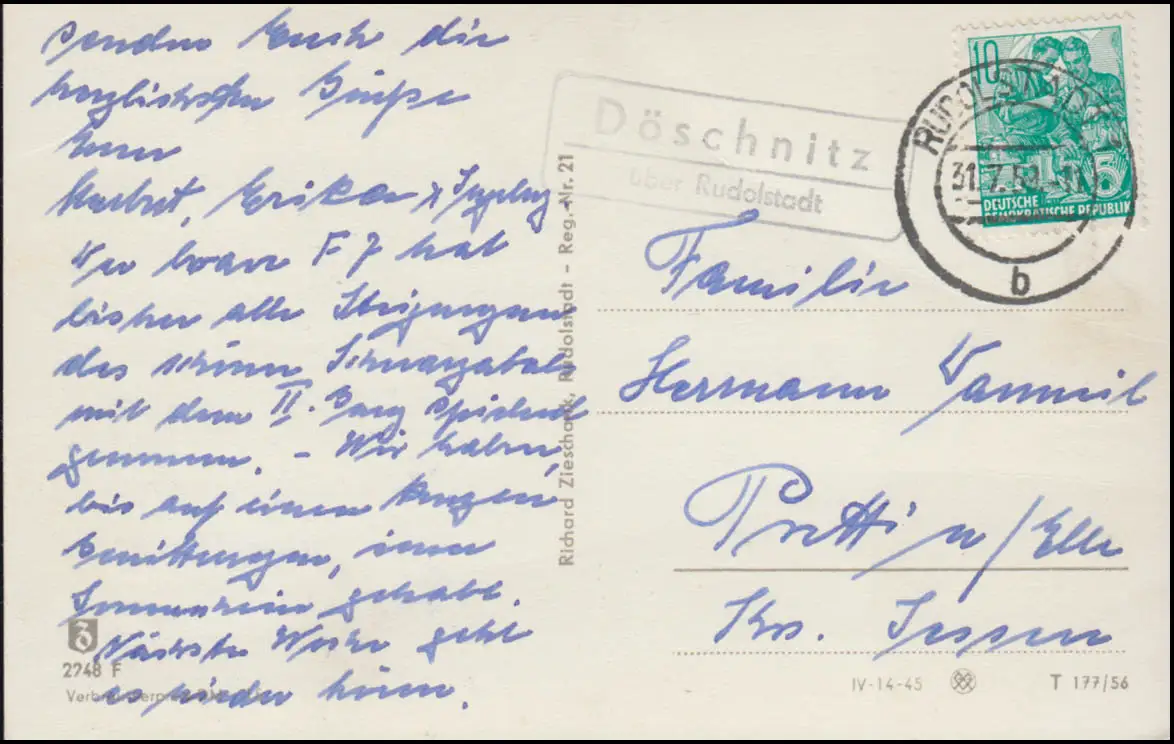 senden Euch die
herzlichsten Grüße
Eure
Herbert, Erika & Ingeburg
Der Wagen F 7 hat
bisher alle Steigungen
des schönen Schwarzatals
mit dem II. Gang spielend
genommen. – Wir haben,
bis auf einen kurzen
Gewitterregen, immer
Sonnenschein gehabt.
Nächste Woche geht
es wieder heim.
2748 F
Richard Zieschank, Rudolstadt - Reg.-Nr. 21
Döschnitz
über Rudolstadt
10
DEUTSCHE
DEMOKRATISCHE REPUBLIK
RUDOLSTADT
31.7.5
b
Familie
Hermann
Prettin/Elbe
Krs. Jessen
IV-14-45
T 177/56